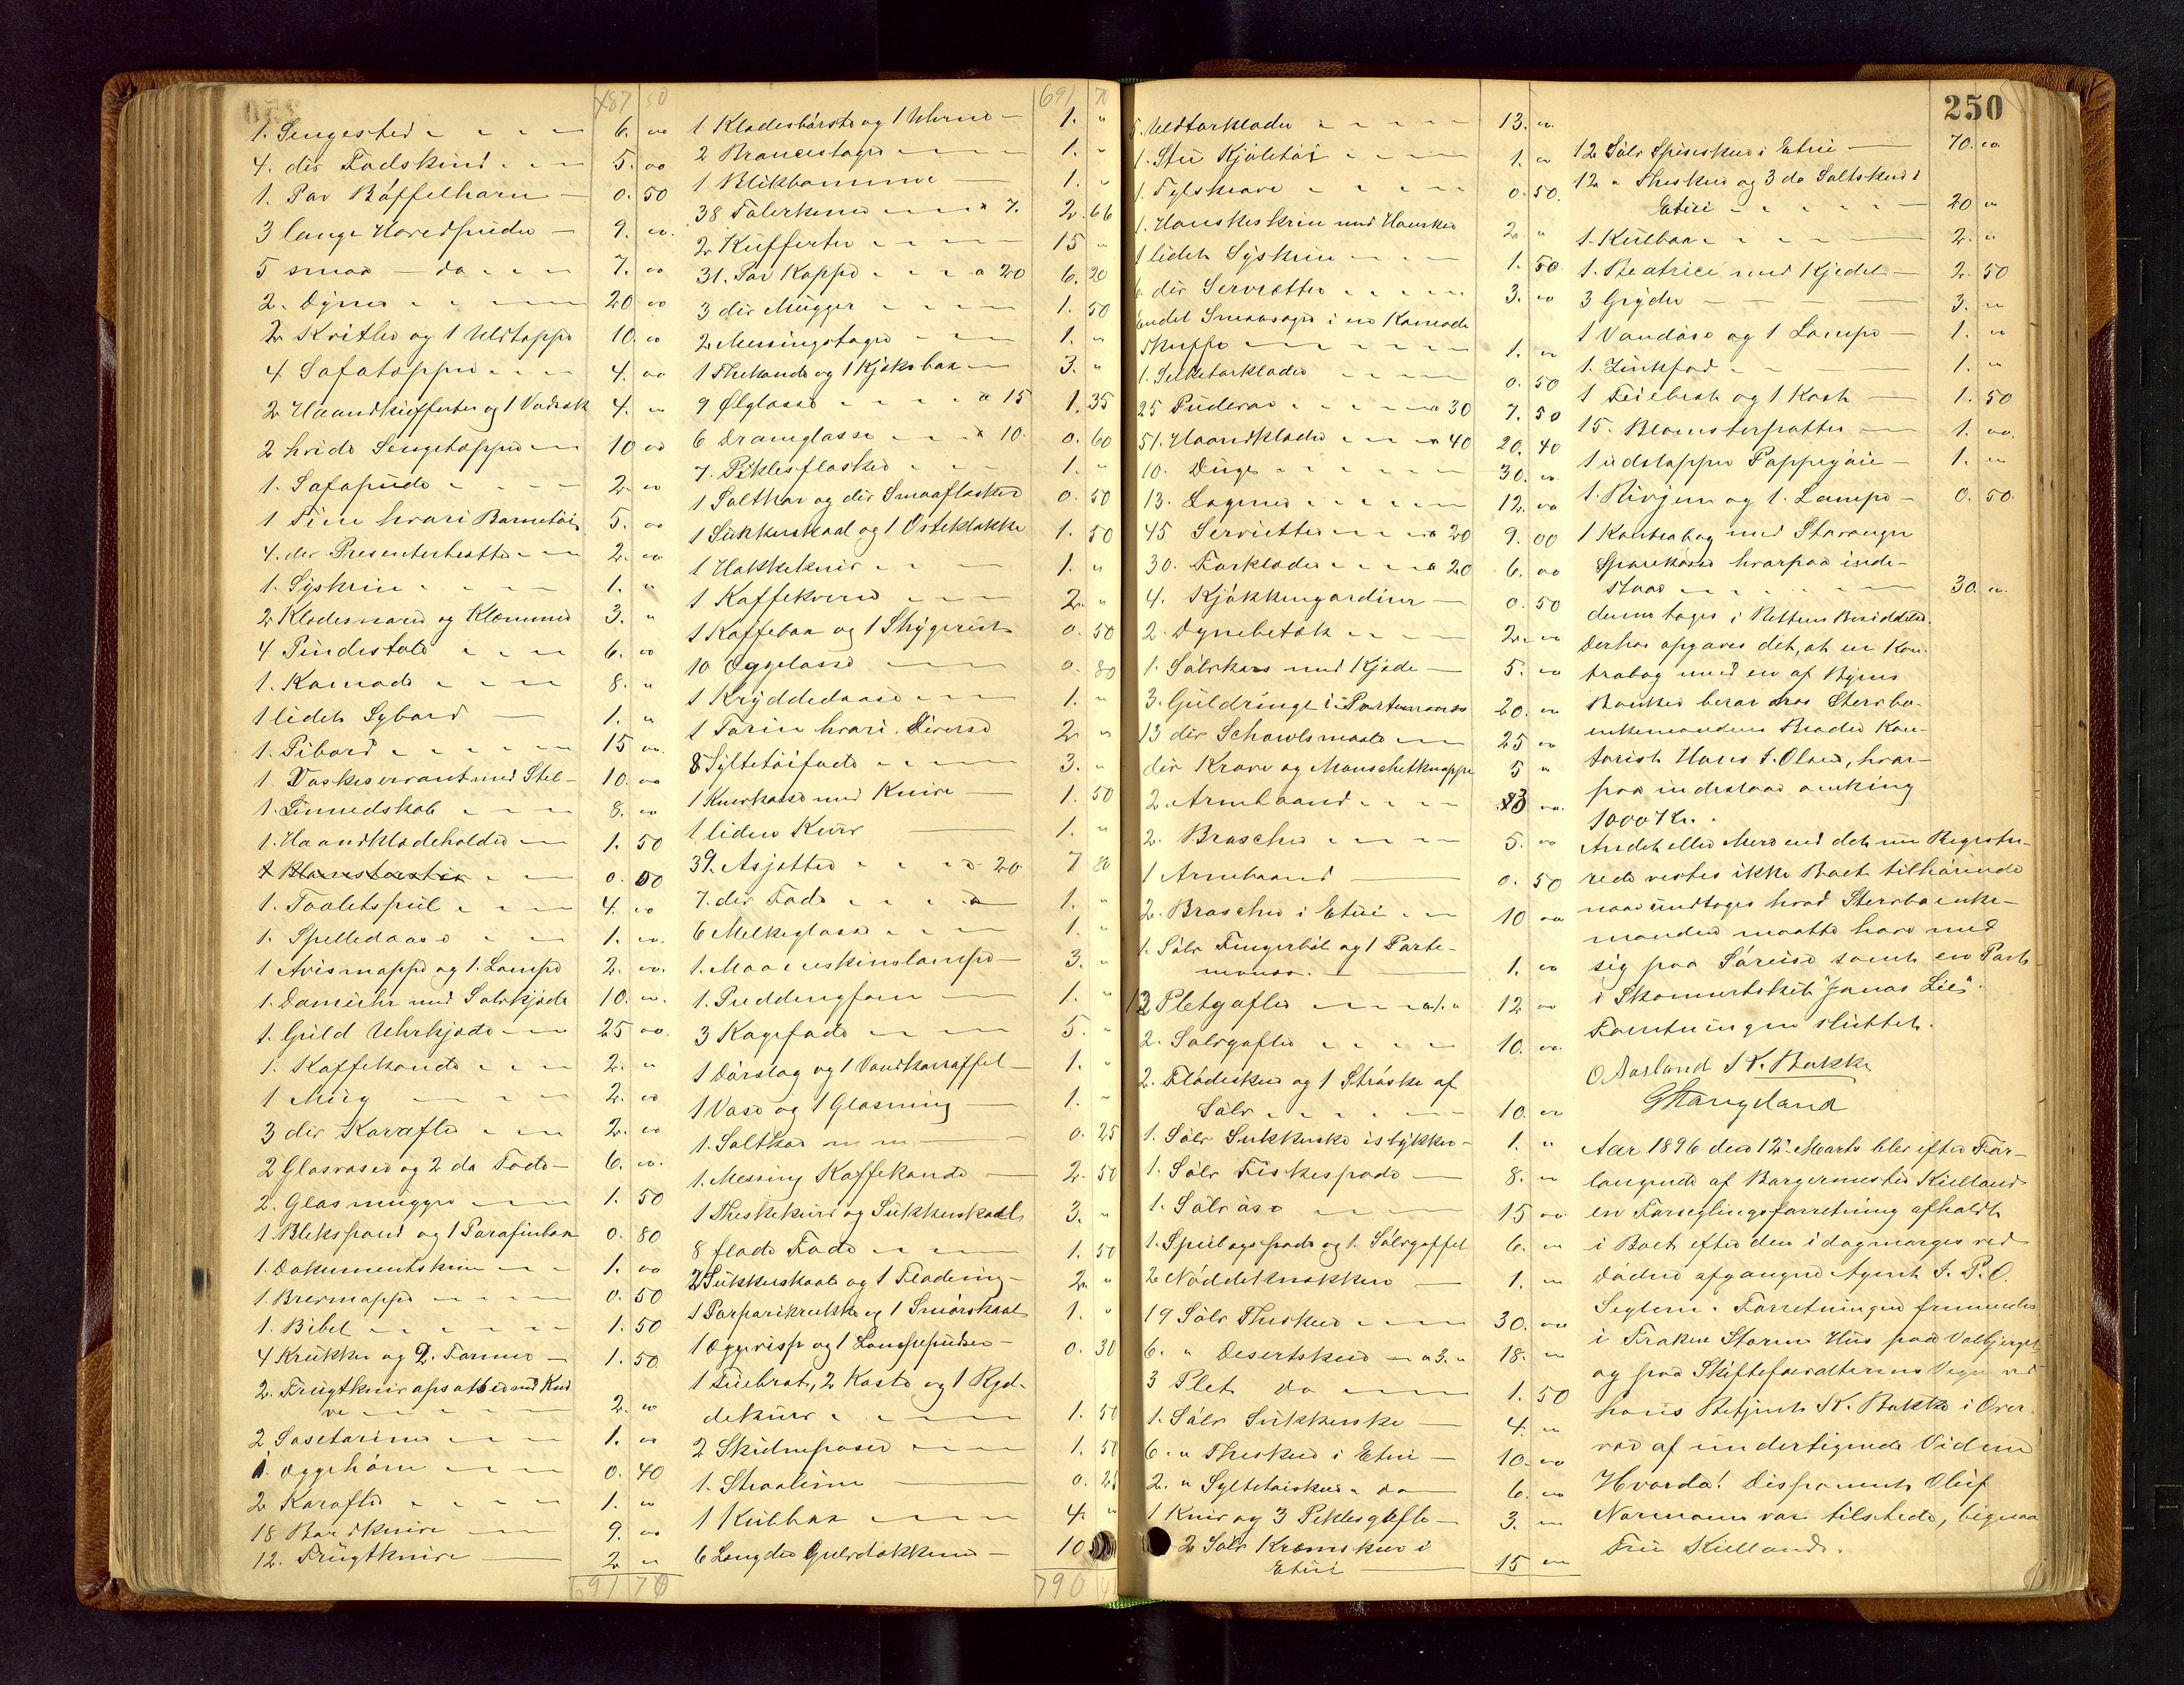 487 50
1. Sengested 6. 00
4. div Fodskind 5. 00
1. Par Bøffelhorn 0. 50
3 lange Hovedpuder 9. 00
5 smaa do 7. 00
2. Dyner 20 00
2 Kvitler og 1 Uldtæppe 10. 00
4 Sofatæpper 4. 00
2 Haandkufferter og 1 Vadsæk 4. "
2 hvide Sengetæpper 10 00
1. Sofapude 2. 00
1 Tine hvori Barnetøi 5. 00
4. div Presenterbrætte 2. 00
1. Syskrin 1. "
2 Klædesnorer og Klemmer 3. "
4 Pindestole 6. 00
1. Komode 8. "
1 lidet Sybord 1. "
1. Pibord 15 00.
1. Vaskeservant med Stel 10. 00
1. Linnedskab 8. 00
1. Haandklædeholder 1. 50
1 Blomsterstativ 0. 00
1. Toiletspeil 4. 00
1. Spilledaase 1. 00.
1 Avismappe og 1. Lampe 2. 00.
1. Dameuhr med Sølvkjæde 10. 00.
1. Guld Uhrkjæde 25 00.
1. Kaffekande 2. "
1 Mug 2. 00
3 div Karafler 2. 00
2 Glasvaser og 2 do Fade 6. 00.
2. Glasmugger 1. 50
1 Blekspand og 1 Parafinbox 0. 80
1. Dokumentskrin 1. 00
1. Brevmappe 0. 50
1. Bibel 1. 50
4 Krukker og 2. Former 1. 50
2. Frugtknivopsatser med Kni
ve 2. 00
2 Sosetariner 1. 00
1. Æggehøne 0. 40
2 Karafler 1. 00
18 Bordknive 9. 00
12. Frugtknive 2 "
691 70
691 70
1 Klædesbørste og 1 Uhrne 1. "
2 Broncestager 1. "
1 Blikbomme 1. "
38 Talerkener a 7. 2. 66
2 Kufferter 15 "
31. Par Koppe a 20 6. 20
3 div Mugger 1. 50
2 Messingstager 1. "
1 Thekande og 1 Kjeksbox 3. "
9 Ølglasse a 15 1. 35
6 Dramglasse a 10. 0. 60
7. Piklesflasker 1. "
1 Salthar og div Smaaflasker 0. 50
1 Sukkerskaal og 1 Osteklokke 1. 50
1 Hakkekniv 1. "
1 Kaffekvern 2. "
1 Kaffebox og 1 Stegerist 0. 50
10 Æggeglasse 0. 80
1 Krydderdaase 1. "
1 Terin hvori Diverse 2 "
8 Syltetøifade 3. "
1 Knivkasse med Knive 1. 50
1 liden Kurv 1. "
39. Asjetter a 20 7 80
7. div Fade 1. "
6 Melkeglasse 1. "
1. Maaneskinslampe 3. "
1. Puddingform 1. "
3 Kagefade 5. "
1 Dørslag og 1 Vandkaraffel 1. "
1 Vase og 1 Glasning 1. "
1. Saltkar 0. 25
1. Messing Kaffekande 2. 50
1 Theskekurv og Sukkerskaal 3. "
8 flade Fade 1. 50
2 Sukkerskaale og 1 Flødering 2. "
1 Porparikrukke og 1 Smørskaal 1. "
1 Æggevisp og 1 Lampepudser 0. 30
1 Feiebræt, 2 Koste og 1 Ryd-
dekurv 1. 50
2 Skidneposer 1. 50
1. Straalime 0. 25
1 Kulbox 4. "
6 Længder Gulvdækkener 10
790
5. Uldtørklæder 13. 00.
1. Stk Kjoletøi 1. 00
1. Fylskrave 0. 50.
1. Hanskeskrin med Hansker 2. "
1 lidet Syskrin 1. 50
6. div Servietter 3. 00
Endel Smaasager i en Komode
skuffe 1. 00
1. Silketørklæde 0. 50
25 Pudevar a 30 7. 50
51. Haandklæder a 40 20. 40
10. Duge 30. 00.
13. Lagener 12. 00
45 Servietter a 20 9. 00
30. Forklæder a 20 6. 00
4. Kjøkkengardiner 0. 50
2. Dynebetræk 2. 00
1. Sølvkors med Kjæde 5. 00
3. Guldringe i Portemonnæ 20. 00
13 div Schawlsnaale 25 00
div Krave og Manschetknappe 5 "
2. Armbaand 23 00.
2. Brosche 5. 00
1 Armbaand 0. 50
2. Broscher i Etui 10 00
1. Sølv Fingerbøl og 1 Porte-
monæ. 1. 00
12 Pletgafler a 1. " 12 00
2. Sølvgafler 10. 00.
2. Flødeskeer og 1 Strøske af
Sølv 10. 00
1. Sølv Sukkerske i stykker 1. "
1. Sølv Fiskespade 8. "
1. Sølvøse 15 00
1. Speilægspade og 1. Sølvgaffel 6. "
2 Nøddeknækkere 1. "
19 Sølv Theskeer 30. 00
6. " Desertskeer a 3. " 18. "
3 Plet do 1. 50
1. Sølv Sukkerske 4. "
6. " Theskeer i Etui 10. 00
2. " Syltetøiskeer do 6. 00
1 Kniv og 3 Piklesgafle 3. "
2 Sølv Kremskeer i
Etui 15 "
250
12 Sølv Spiseskeer i Etui 70. 00
12 " Theskeer og 3 do Saltskeer i
Etui 20 "
1. Kulbox 2. "
1. Beatrice med Kjedel 2. 50
3 Gryder 3. "
1 Vandøse og 1 Lampe 1. "
1. Zinkfad 1. "
1 Feiebræt og 1 Kost 1. 50
15. Blomsterpotter 1. 00.
1 udstoppet Pappegøie 1. "
1. Rivjern og 1. Lampe 0. 50.
1 Kontrabog med Stavanger
Sparekasse hvorpaa inde-
staar 30. 00.
denne tages i Rettens Besiddelse.
Derhos opgaves det, at en Kon-
trabog med en af Byens
Banker beror hos Stervbo-
enkemandens Broder Kon-
torist Hans I. Olsen, hvor-
paa indestaar omkring
1000 Kr.
Andet eller Mere end det nu Registre-
rede vistes ikke Boet tilhørende
naar undtages hvad Stervboenke-
manden maatte have med
sig paa Søreise samt en Part
i Skonnertskib "Jonas Lie".
Forretningen sluttet.
O Aarland K. Bakke
G Stangeland
Aar 1896 den 12te Marts blev efter For-
langende af Borgermester Kielland
en Forseglingsforretning afholdt
i Boet efter den i dag morges ved
Døden afgangne Agent I. P. C.
Seglem. Forretningen fremmedes
i Frøken Storms Hus paa Valbjerget
og paa Skifteforvalterens Vegne ved
hans Betjent K. Bakke i Over-
vær af undertegnede Vidner
Hvorda! Disponent Oluf
Normann var tilstede, ligesaa
Fru Kielland.